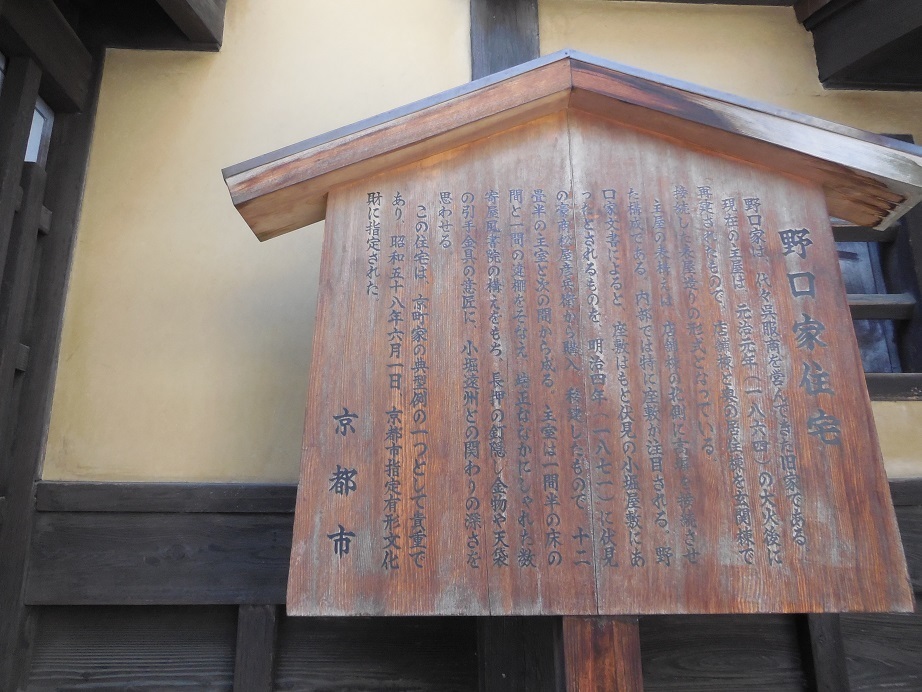 野口家住宅
野口家は、代々呉服商を営んできた旧家である。
現在の主屋は、元治元年(一八六四)の大火後に
再建されたもので、店舗棟と奥の居住棟を玄関棟で
接続した表屋造りの形式となっている。
主屋の表構えは
た構成である。内部では特に座敷が注目される。野
口家文書によると、座敷はもと伏見の小堀屋敷にあ
ったとされるものを、明治四年(一八七一)に伏見
の豪商 から購入、移建したもので、十二
畳半の主室と次の間から成る。主室は一間半の床の
間と一間の違棚をそなえ、端正ななかにしゃれた数
寄屋風書院の構えをもち、長押の釘隠し金物や天袋
の引手金具の意匠に、小堀遠州との関わりの深さを
思わせる。
この住宅は、京町家の典型例の一つとして貴重で
あり、昭和五十八年六月一日、京都市指定有形文化
財に指定された。
京都市